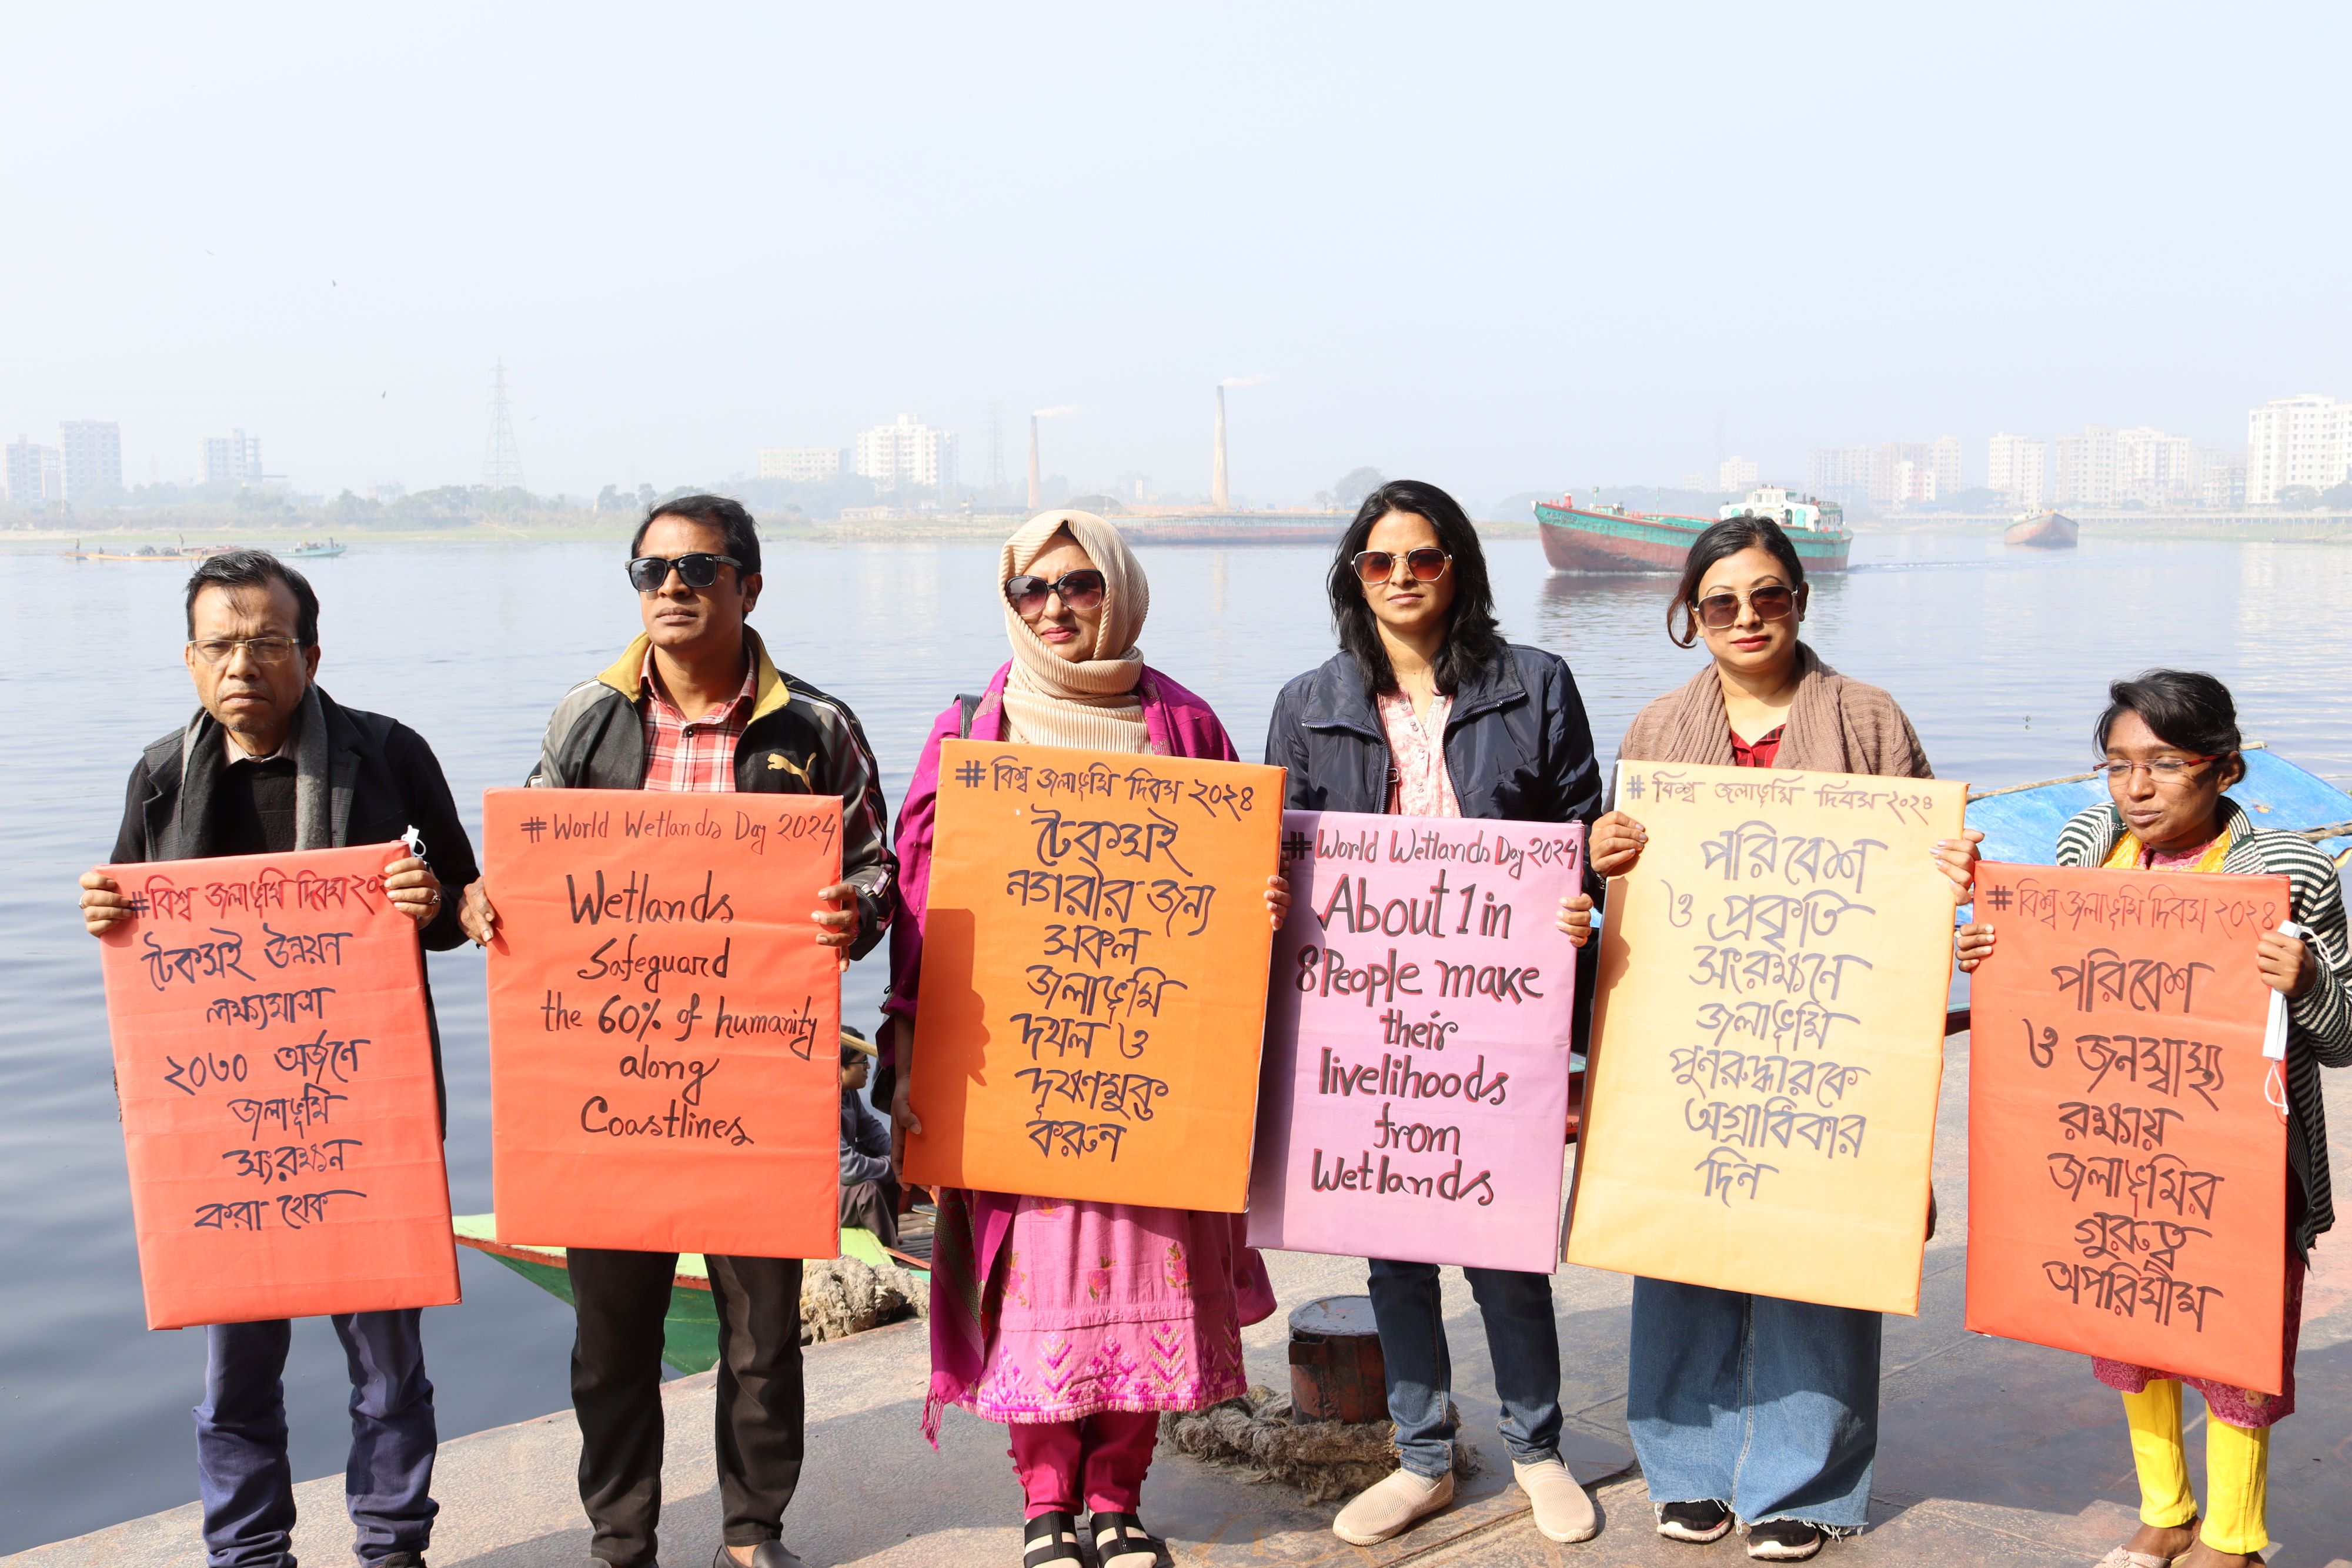 #বিশ্ব জলাভূমি দিবস ২০
টেকসই উন্নয়ন
লক্ষ্যমাত্রা
২০৩০ অর্জনে
জলাভূমি
সংরক্ষন
করা হোক
#World Wetlands Day 2024
Wetlands
Safeguard
the 60% of humanity
along
Coastlines
#বিশ্ব জলাভূমি দিবস ২০২৪
টেকসই
নগরীর জন্য
সকল
জলাভূমি
দখল ও
দূষণমুক্ত
করুন
#World Wetlands Day 2024
About 1 in
8 People make
their
livelihoods
from
Wetlands
#বিশ্ব জলাভূমি দিবস ২০২৪
পরিবেশ
ও প্রকৃতি
সংরক্ষনে
জলাভূমি
পুনরুদ্ধারকে
অগ্রাধিকার
দিন
#বিশ্ব জলাভূমি দিবস ২০২৪
পরিবেশ
ও জনস্বাস্থ্য
রক্ষায়
জলাভূমির
গুরুত্ব
অপরিসীম